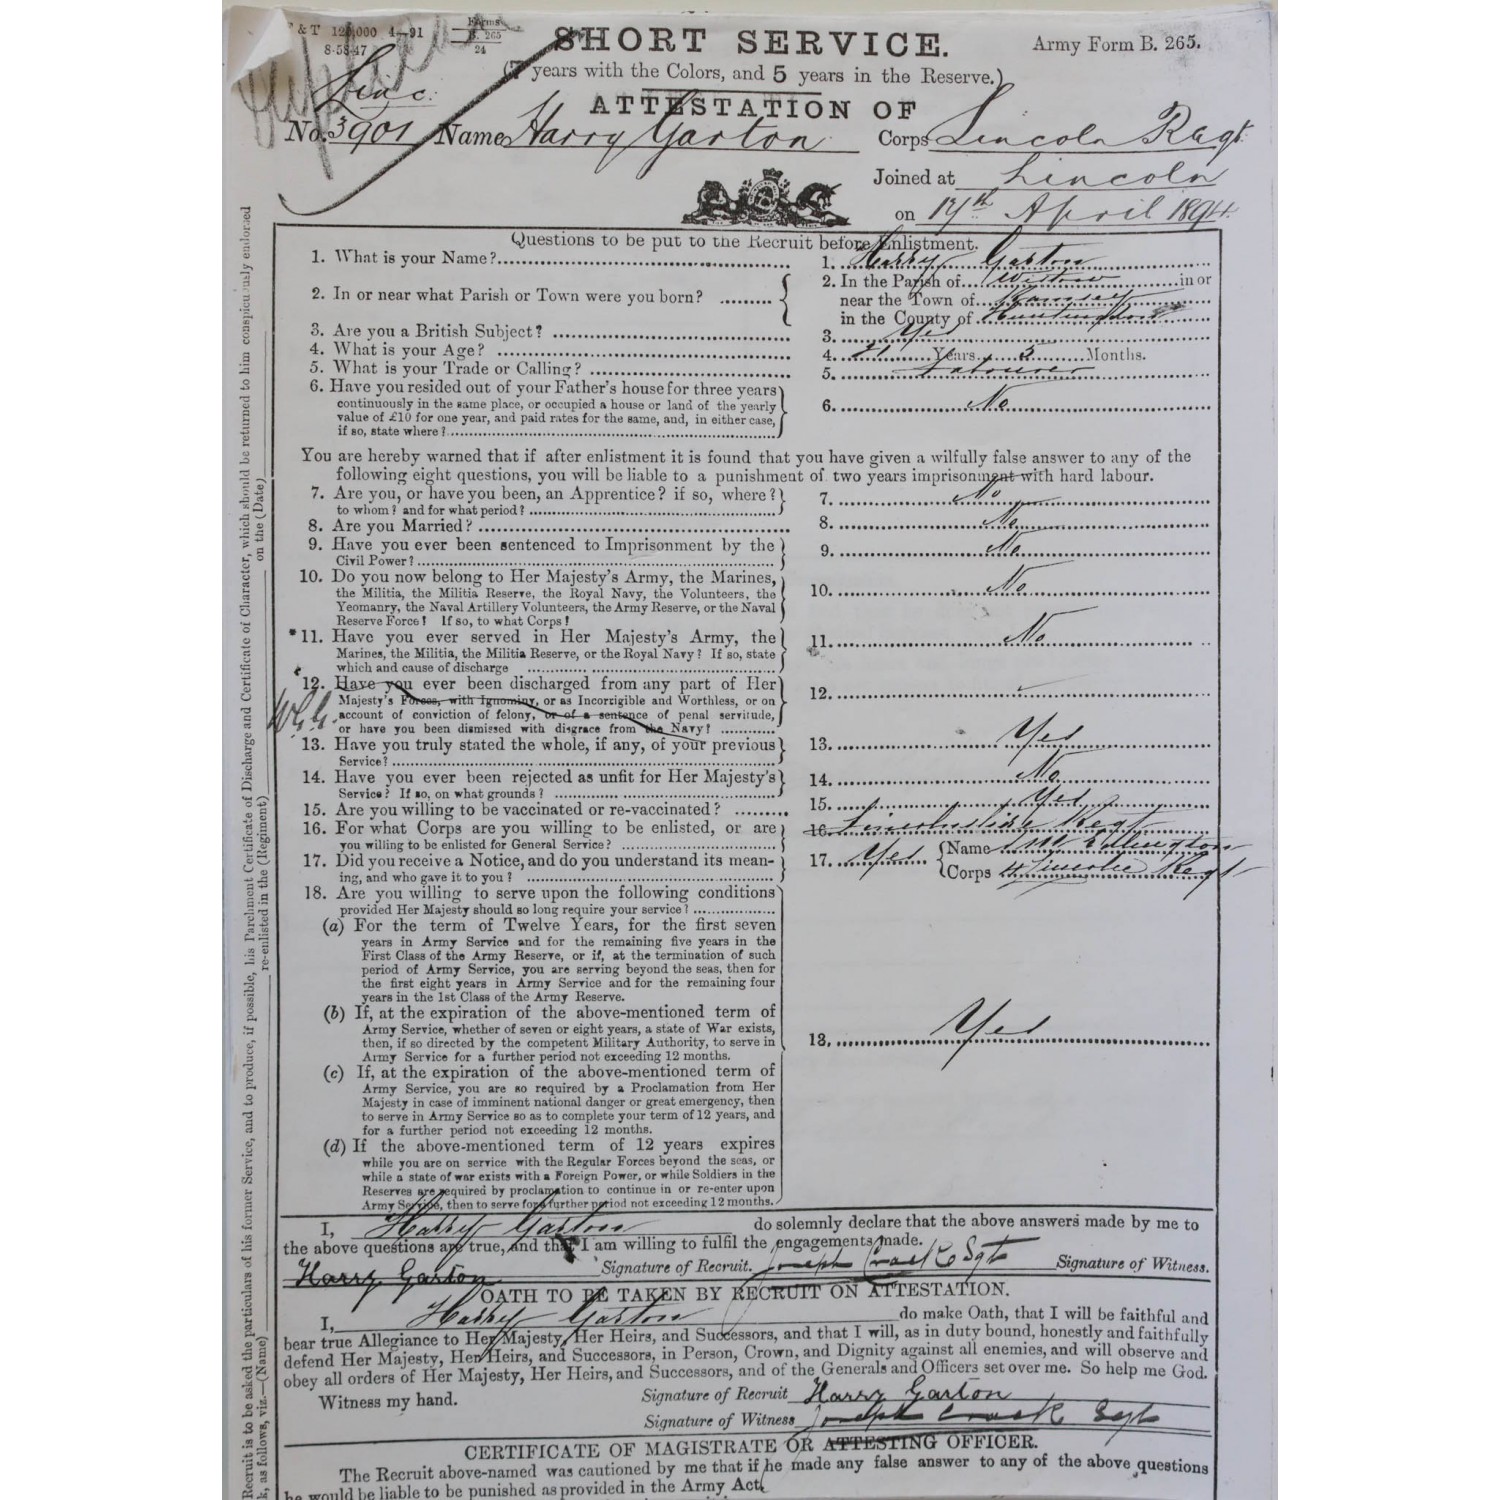 & T 120,000 4—91 Forms B. 265 24
8·58·47
SHORT SERVICE.
Army Form B. 265.
(7 years with the Colors, and 5 years in the Reserve.)
Linc:
ATTESTATION OF
No. 3901 Name Harry Garton Corps Lincoln Regt.
Joined at Lincoln
on 17th April 1894.
Questions to be put to the Recruit before Enlistment.
1. What is your Name? 1. Harry Garton
2. In or near what Parish or Town were you born? 2. In the Parish of Wistow in or
near the Town of Ramsey
in the County of Huntingdon
3. Are you a British Subject? 3. Yes
4. What is your Age? 4. 21 Years 5 Months.
5. What is your Trade or Calling? 5. Labourer
6. Have you resided out of your Father's house for three years
continuously in the same place, or occupied a house or land of the yearly
value of £10 for one year, and paid rates for the same, and, in either case,
if so, state where? 6. No
You are hereby warned that if after enlistment it is found that you have given a wilfully false answer to any of the
following eight questions, you will be liable to a punishment of two years imprisonment with hard labour.
7. Are you, or have you been, an Apprentice? if so, where? 7. No
to whom? and for what period?
8. Are you Married? 8. No
9. Have you ever been sentenced to Imprisonment by the 9. No
Civil Power?
10. Do you now belong to Her Majesty's Army, the Marines,
the Militia, the Militia Reserve, the Royal Navy, the Volunteers, the 10. No
Yeomanry, the Naval Artillery Volunteers, the Army Reserve, or the Naval
Reserve Force? If so, to what Corps?
*11. Have you ever served in Her Majesty's Army, the
Marines, the Militia, the Militia Reserve, or the Royal Navy? If so, state 11. No
which and cause of discharge
12. Have you ever been discharged from any part of Her
Majesty's Forces, with Ignominy, or as Incorrigible and Worthless, or on 12.
account of conviction of felony, or of a sentence of penal servitude,
or have you been dismissed with disgrace from the Navy?
13. Have you truly stated the whole, if any, of your previous 13. Yes
Service?
14. Have you ever been rejected as unfit for Her Majesty's 14. No
Service? If so, on what grounds?
15. Are you willing to be vaccinated or re-vaccinated? 15. Yes
16. For what Corps are you willing to be enlisted, or are 16. Lincolnshire Regt
you willing to be enlisted for General Service?
17. Did you receive a Notice, and do you understand its mean- 17. Yes Name
ing, and who gave it to you? Corps Lincoln Regt
18. Are you willing to serve upon the following conditions
provided Her Majesty should so long require your service?
(a) For the term of Twelve Years, for the first seven
years in Army Service and for the remaining five years in the
First Class of the Army Reserve, or if, at the termination of such
period of Army Service, you are serving beyond the seas, then for
the first eight years in Army Service and for the remaining four
years in the 1st Class of the Army Reserve.
(b) If, at the expiration of the above-mentioned term of
Army Service, whether of seven or eight years, a state of War exists,
then, if so directed by the competent Military Authority, to serve in 18. Yes
Army Service for a further period not exceeding 12 months.
(c) If, at the expiration of the above-mentioned term of
Army Service, you are so required by a Proclamation from Her
Majesty in case of imminent national danger or great emergency, then
to serve in Army Service so as to complete your term of 12 years, and
for a further period not exceeding 12 months.
(d) If the above-mentioned term of 12 years expires
while you are on service with the Regular Forces beyond the seas, or
while a state of war exists with a Foreign Power, or while Soldiers in the
Reserves are required by proclamation to continue in or re-enter upon
Army Service, then to serve for a further period not exceeding 12 months.
I, Harry Garton do solemnly declare that the above answers made by me to
the above questions are true, and that I am willing to fulfil the engagements made.
Harry Garton Signature of Recruit. Joseph Crack Sgt Signature of Witness.
OATH TO BE TAKEN BY RECRUIT ON ATTESTATION.
I, Harry Garton do make Oath, that I will be faithful and
bear true Allegiance to Her Majesty, Her Heirs, and Successors, and that I will, as in duty bound, honestly and faithfully
defend Her Majesty, Her Heirs, and Successors, in Person, Crown, and Dignity against all enemies, and will observe and
obey all orders of Her Majesty, Her Heirs, and Successors, and of the Generals and Officers set over me. So help me God.
Witness my hand. Signature of Recruit Harry Garton
Signature of Witness Joseph Crack Sgt
CERTIFICATE OF MAGISTRATE OR ATTESTING OFFICER.
The Recruit above-named was cautioned by me that if he made any false answer to any of the above questions
he would be liable to be punished as provided in the Army Act.
Recruit is to be asked the particulars of his former Service, and to produce, if possible, his Parchment Certificate of Discharge and Certificate of Character, which should be returned to him conspicuously endorsed
as follows, viz.—(Name) re-enlisted in the (Regiment) on the (Date)